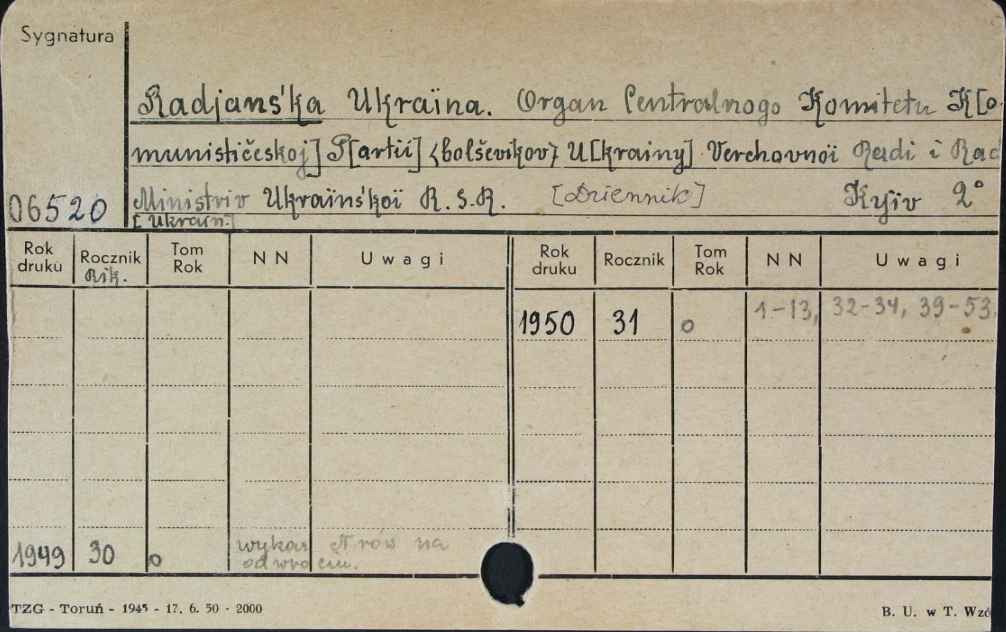 Sygnatura
Radjans'ka Ukraïna. Organ Centralnogo Komitetu K[o
munističeskoj] P[artii] <bolševikov> U[krainy] Verchovnoï Radi i Rad
06520 Ministriv Ukraïns'koï R.S.R. [Dziennik] Kyïv 2°
[Ukrain.]
Rok druku Rocznik Rik. Tom Rok NN Uwagi Rok druku Rocznik Tom Rok NN Uwagi
1950 31 0 1-13, 32-34, 39-53,
1949 30 0 wykaz Nrów na
odwrociu.
TZG - Toruń - 1945 - 17. 6. 50 - 2000 B. U. w T. Wzó